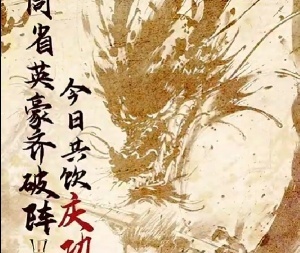 周省英豪齐破阵
今日共饮庆功